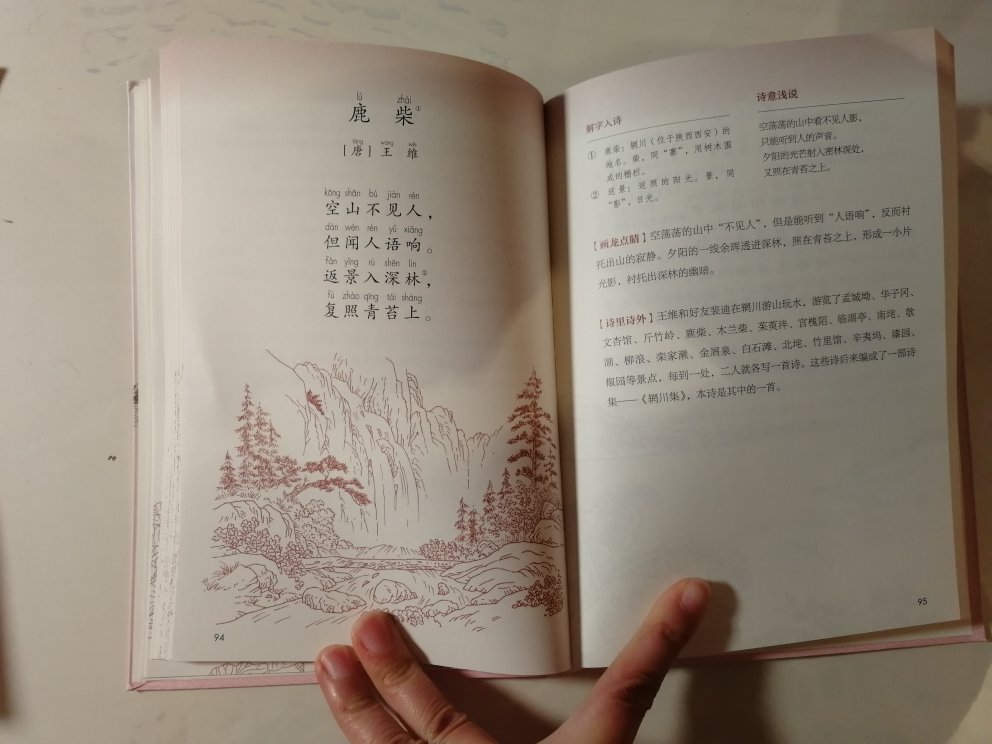 lù zhài
鹿 柴①
táng wáng wéi
［唐］王 维
kōng shān bú jiàn rén
空山不见人，
dàn wén rén yǔ xiǎng
但闻人语响。
fǎn yǐng rù shēn lín
返景入深林②，
fù zhào qīng tái shàng
复照青苔上。
94
解字入诗
① 鹿柴：辋川（位于陕西西安）的
地名。柴，同“寨”，用树木围
成的栅栏。
② 返景：返照的阳光。景，同
“影”，日光。
诗意浅说
空荡荡的山中看不见人影，
只能听到人的声音。
夕阳的光芒射入密林深处，
又照在青苔之上。
【画龙点睛】空荡荡的山中“不见人”，但是能听到“人语响”，反而衬
托出山的寂静。夕阳的一线余晖透进深林，照在青苔之上，形成一小片
光影，衬托出深林的幽暗。
【诗里诗外】王维和好友裴迪在辋川游山玩水，游览了孟城坳、华子冈、
文杏馆、斤竹岭、鹿柴、木兰柴、茱萸沜、宫槐陌、临湖亭、南垞、欹
湖、柳浪、栾家濑、金屑泉、白石滩、北垞、竹里馆、辛夷坞、漆园、
椒园等景点，每到一处，二人就各写一首诗。这些诗后来编成了一部诗
集——《辋川集》，本诗是其中的一首。
95